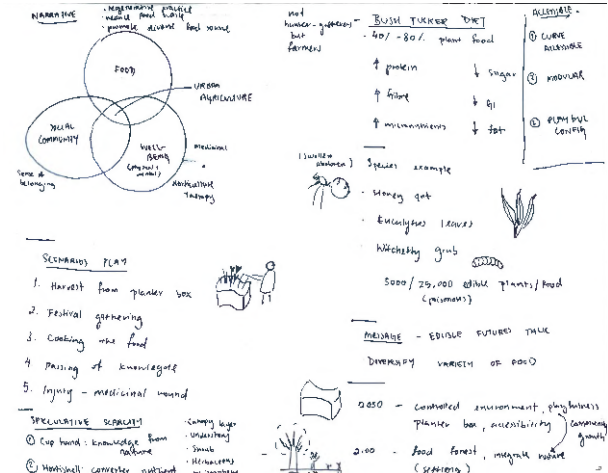 NARRATIVE
- Regenerative practice
- promote diverse food source
FOOD
URBAN
AGRICULTURE
SOCIAL
COMMUNITY
WELL-
BEING
(physical &
mental)
medicinal
Horticulture
Therapy
Sense of
belonging
SCENARIOS PLAY
1. Harvest from planter box
2. Festival gathering
3. Cooking the food
4. Passing of knowledge
5. Injury - medicinal wound
SPECULATIVE
① Cup hand : knowledge from
nature
② nutrient
- Canopy layer
- Understory
- Shrub
- Herbaceous
not
hunter-gatherers
but
farmers
BUSH TUCKER DIET
- 40% - 80% plant food
↑ protein
↓ sugar
↑ fibre
↓ GI
↑ micronutrients
↓ fat
(swollen
abdomen)
Species example
- Honey ant
- Eucalyptus leaves
- Witchetty grub
5000 / 25,000 edible plants / food
(poisonous)
MESSAGE - EDIBLE FUTURES TALK
DIVERSIFY VARIETY OF FOOD
2050 - controlled environment, playfulness
planter box, accessibility
growth
- food forest, integrate nature
① CURVE
ACCESSIBLE
② MODULAR
③ PLAYFUL
CONFIG